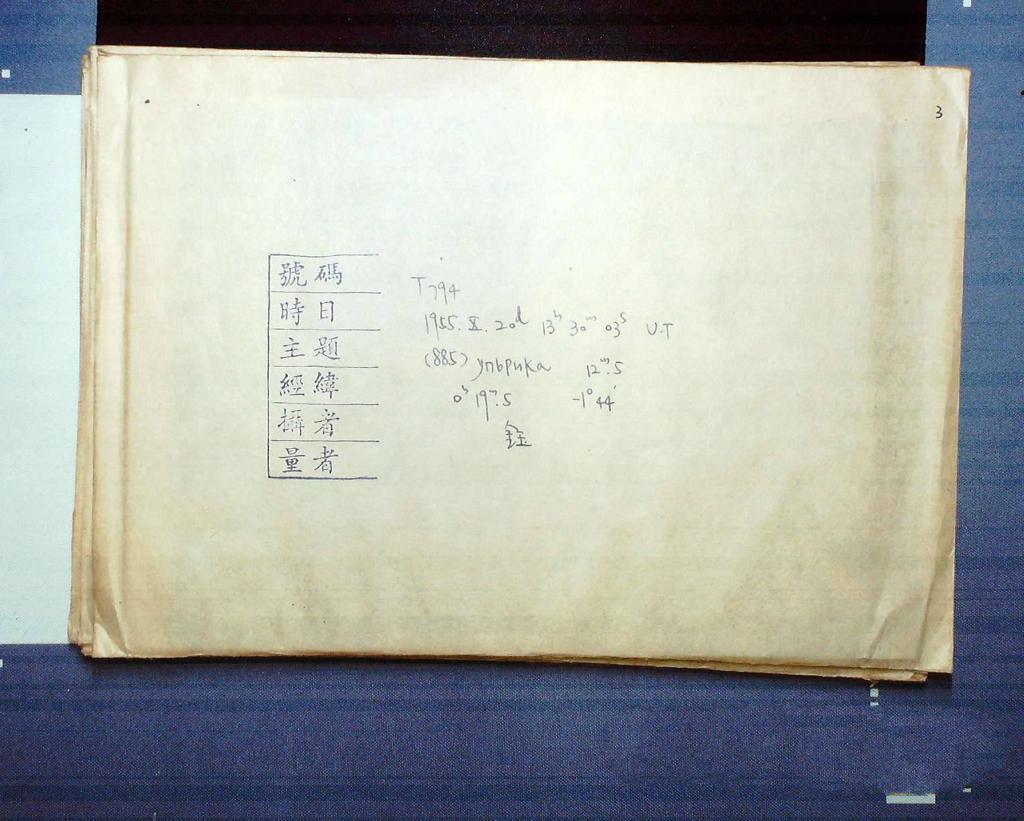 3
號碼 T794
時日 1955. X. 20d 13h 30m 03s U.T
主題 (885) Ульрика 12m.5
經緯 0h 19m.5 -1° 44'
攝者
量者